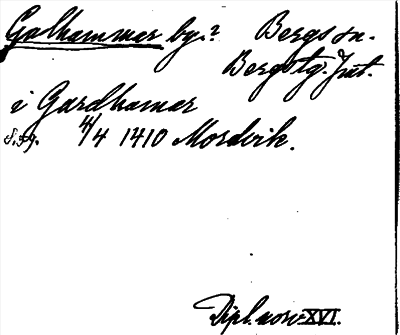 Galhammar by.? Bergs sn.
Bergs tg. Jmt.
i Gardhamar
S. 39. 4/4 1410 Mordvik.
Dipl. norv. XVI.